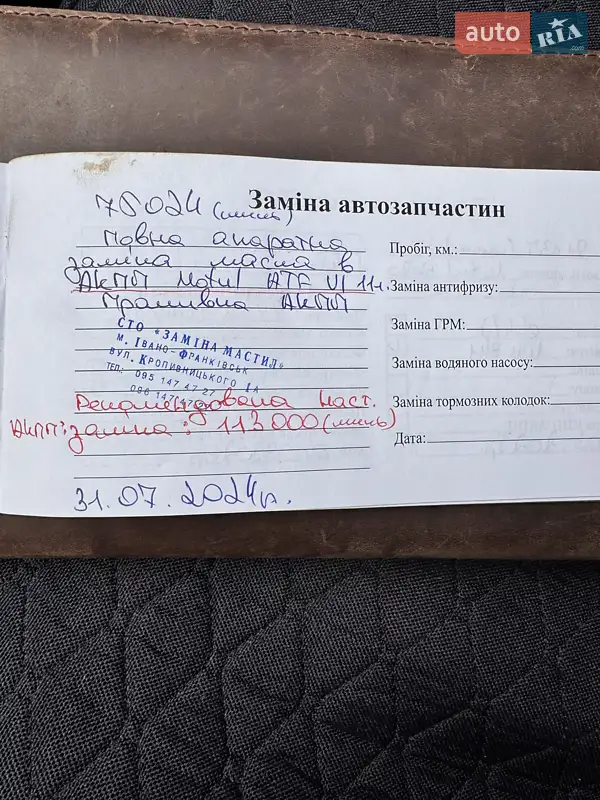 auto RIA .com
Заміна автозапчастин
78024 (миль)
Повна апаратна
заміна масла в
АКПП Motul ATF VI 11л.
Промивка АКПП
СТО "ЗАМІНА МАСТИЛ"
М. ІВАНО-ФРАНКІВСЬК
ВУЛ. КРОПИВНИЦЬКОГО 1А
ТЕЛ.: 095 147 47 27
Рекомендована наст.
АКПП: заміна: 113000 (миль)
31.07.2024р.
Пробіг, км.:
Заміна антифризу:
Заміна ГРМ:
Заміна водяного насосу:
Заміна тормозних колодок:
Дата: